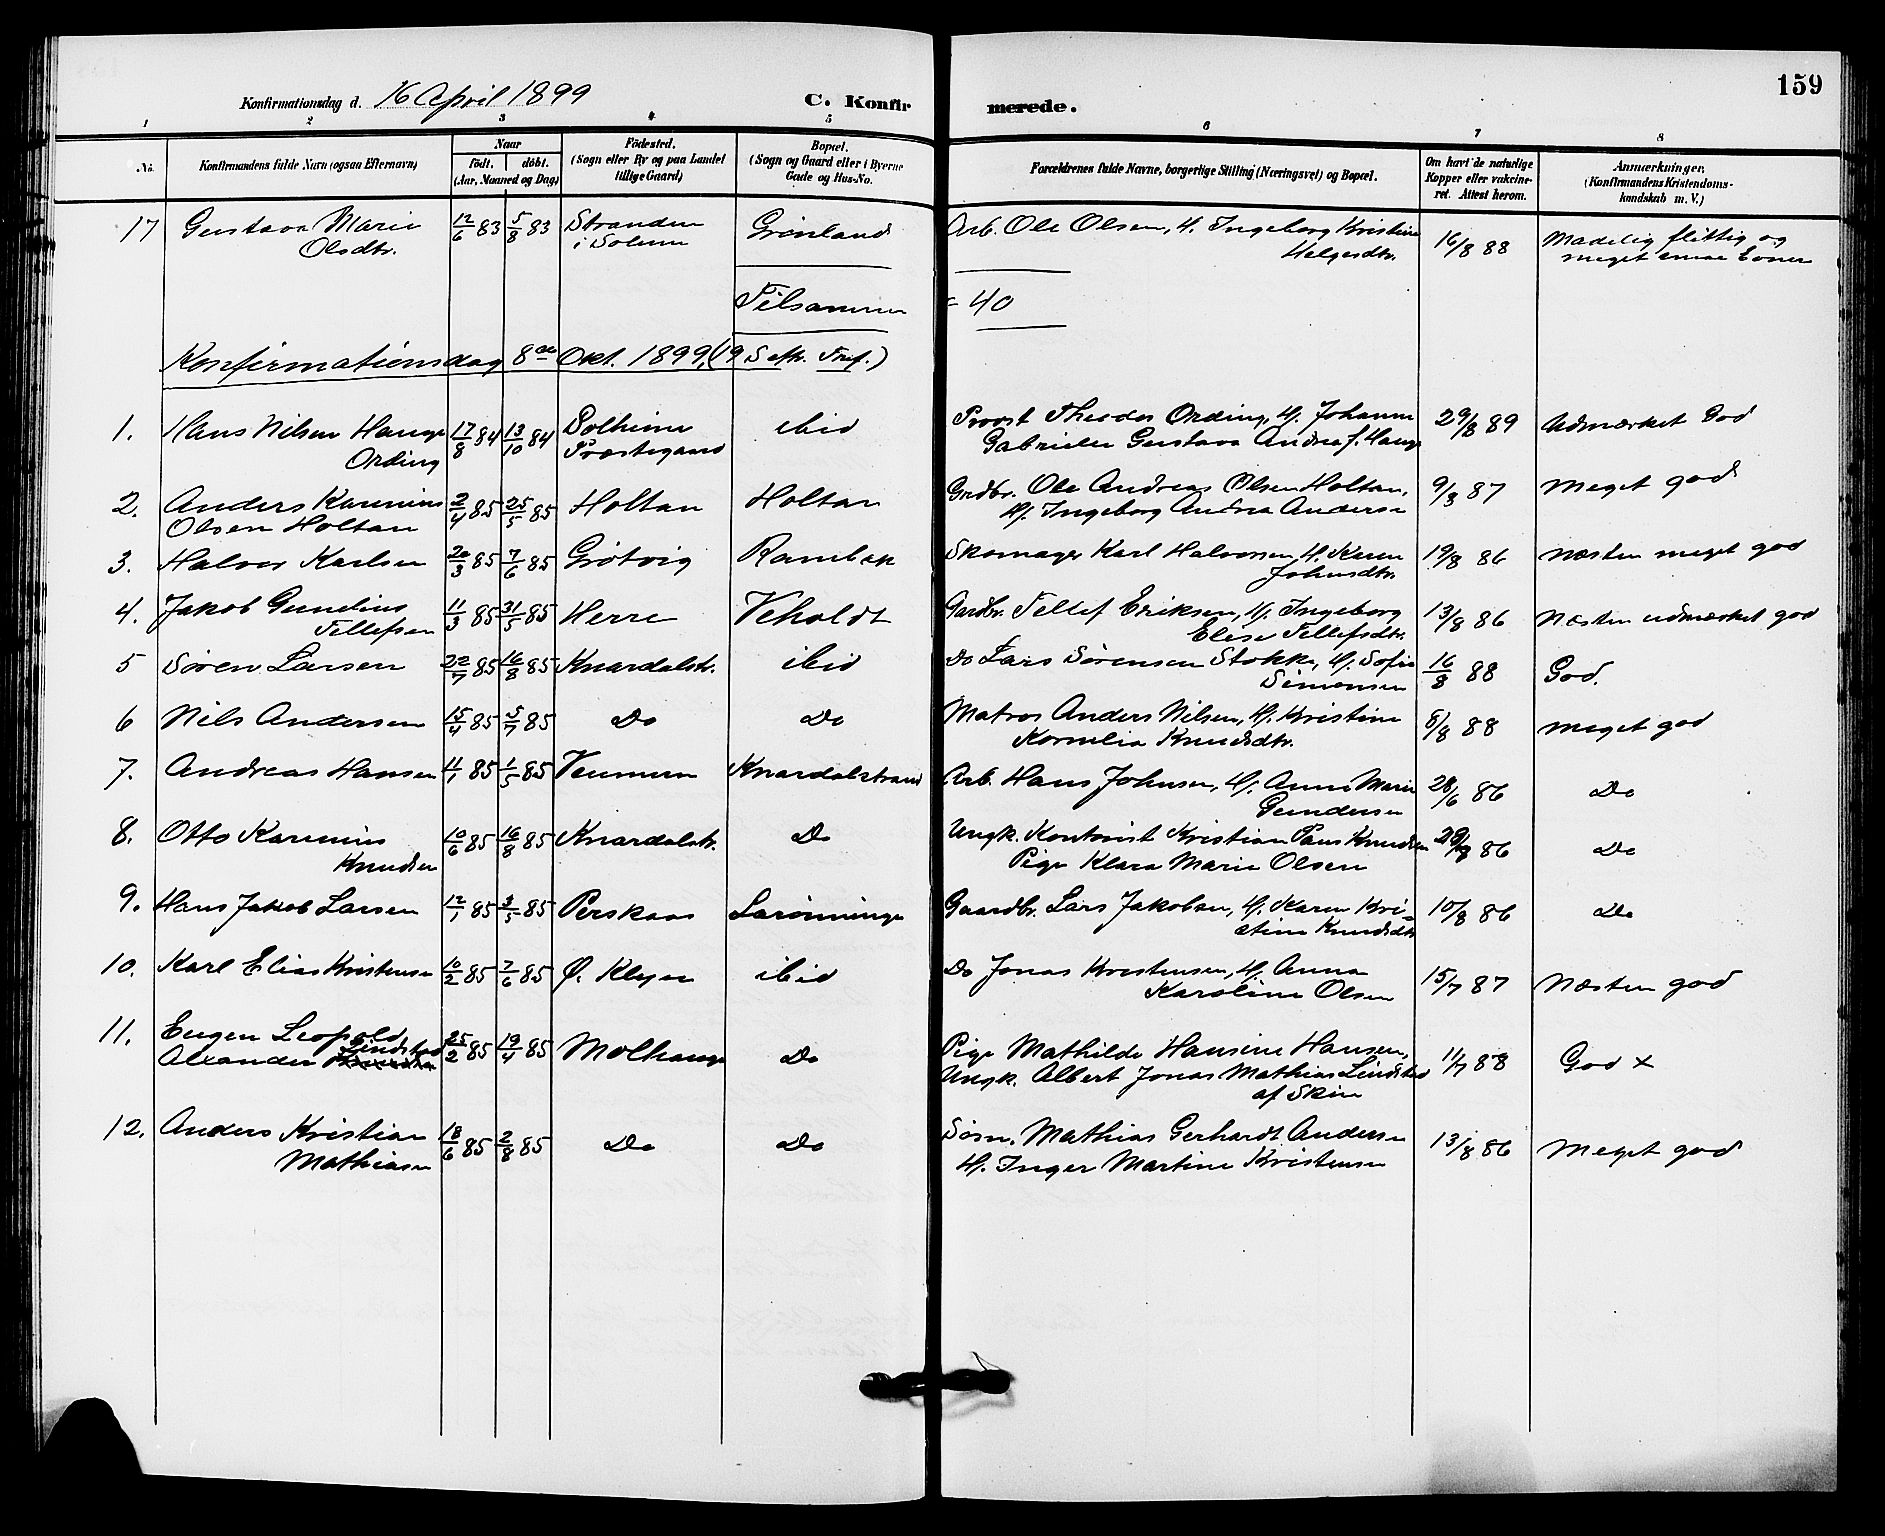 159
Konfirmationsdag d. 16 April 1899
C. Konfirmerede.
1 2 3 4 5 6 7 8
No.
Konfirmandens fulde Navn (ogsaa Efternavn)
Naar
födt. döbt.
(Aar, Maaned og Dag)
Födested.
(Sogn eller By og paa Landet
tillige Gaard)
Bopæl.
(Sogn og Gaard eller i Byerne
Gade og Hus-No.
Forældrenes fulde Navne, borgerlige Stilling (Næringsvei) og Bopæl.
Om havt de naturlige
Kopper eller vakcine-
ret. Attest herom.
Anmærkninger.
(Konfirmandens Kristendoms-
kundskab m. V.)
17 Gustava Marie 12/6 83 5/8 83 Stranden Grönland Arb. Ole Olsen, H. Ingeborg Kristine 16/8 88 Madelig flittig og
Olsdtr. i Solum Helgesdtr. meget Evner
Tilsammen = 40
Konfirmationsdag 8de Okt. 1899, (19 S eft. Tref.)
1. Hans Nilsen Hauge 17/8 84 13/10 84 Solheim ibid Provst Theodor Ording, H. Johanne 29/8 89 Udmærket God
Ording Præstegaard Gabrielle Gustava Andrea f. Hauge
2. Anders Karenius 2/4 85 25/5 85 Holtan Holtan Grdbr. Ole Andreas Olsen Holtan, 9/8 87 Meget god
Olsen Holtan H. Ingeborg Andrea Andersen
3. Halvor Karlsen 20/3 85 7/6 85 Grötvig Rambek Skomager Karl Halvorsen H. Karen 19/8 86 Næsten meget god
Johnsdtr.
4. Jakob Gunelius 11/3 85 31/5 85 Herre Veholdt Gardbr. Tellef Eriksen, H. Ingeborg 13/8 86 Næsten udmærket god
Tellefsen Elise Tellefsdtr.
5 Sören Larsen 22/7 85 16/8 85 Knardalstr. ibid Do Lars Sörensen Stokke, H. Sofie 16/8 88 God.
Simonsen
6 Nils Andersen 15/4 85 5/7 85 Do Do Matros Anders Nilsen, H. Kristine 6/8 88 meget god
Kornelia Knudsdtr.
7. Andreas Hansen 11/1 85 1/5 85 Venmun Knardalstrand Arb. Hans Johnsen, H. Anne Marie 28/6 86 Do
Gundersen
8. Otto Karenius 10/6 85 16/8 85 Knardalstr. Do Ungk. Kontorist Kristian Paus Knudsen 86 Do
Knudsen Pige Klara Marie Olsen
9. Hans Jakob Larsen 12/1 85 3/5 85 Perskaas Larönningen Gaardbr. Lars Jakobsen, H. Karen Kri- 10/8 86 Do
stine Knudsdtr
10. Karl Elias Kristensen 10/2 85 7/6 85 Ø. Klyve ibid Do Jonas Kristensen, H. Anna 15/7 87 Næsten god
Karoline Olsen
11. Eugen Leopold 25/2 85 19/4 85 Molhaug Do Pige Mathilde Hansine Hansen, 11/7 88 God x
Alexander Lindstad Ungk. Albert Jonas Mathias Lindstad
af Skien
12. Anders Kristian 18/6 85 2/8 85 Do Do Sörn. Mathias Gerhardt Andersen 13/8 86 Meget god
Mathiasen H. Inger Martine Kristensen